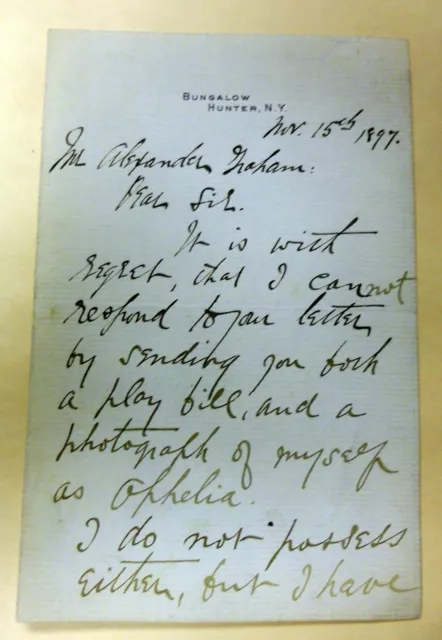 BUNGALOW
HUNTER, N.Y.
Nov. 15th 1897.
Mr Alexander Graham:
Dear Sir.
It is with
regret, that I cannot
respond to your letter
by sending you both
a play bill, and a
photograph of myself
as Ophelia.
I do not possess
either, but I have